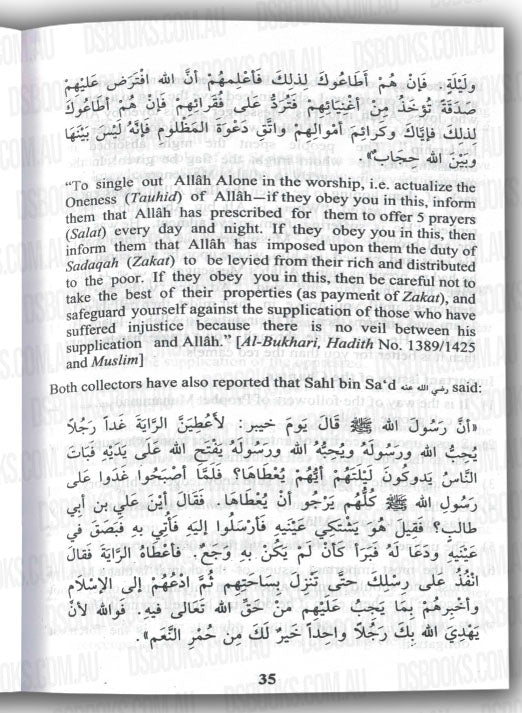 وَلَيْلَةٍ. فَإِنْ هُمْ أَطَاعُوكَ لِذلِكَ فَأَعْلِمهُمْ أَنَّ الله افْتَرَضَ عَلَيْهِمْ
صَدَقَةً تُؤْخَذُ مِنْ أَغْنِيَائِهِمْ فَتُرَدُّ عَلَى فُقَرَائِهِمْ فَإِنْ هُمْ أَطَاعُوكَ
لذلكَ فَإِيَّاكَ وكَرَائِمَ أَمْوَالِهِمْ وَاتَّقِ دَعْوَةَ المَظْلُومِ فَإِنَّهُ لَيْسَ بَيْنَهَا
وَبَيْنَ الله حِجابٌ».
“To single out Allâh Alone in the worship, i.e. actualize the
Oneness (Tauhid) of Allâh—if they obey you in this, inform
them that Allâh has prescribed for them to offer 5 prayers
(Salat) every day and night. If they obey you in this, then
inform them that Allâh has imposed upon them the duty of
Sadaqah (Zakat) to be levied from their rich and distributed
to the poor. If they obey you in this, then be careful not to
take the best of their properties (as payment of Zakat), and
safeguard yourself against the supplication of those who have
suffered injustice because there is no veil between his
supplication and Allâh.” [Al-Bukhari, Hadith No. 1389/1425
and Muslim]
Both collectors have also reported that Sahl bin Sa‘d رضي الله عنه said:
«أنَّ رَسُولَ الله ﷺ قَالَ يَومَ خيبر: لأُعطِيَنَّ الرَّايَةَ غَداً رَجُلًا
يُحِبُّ الله ورَسُولَهُ ويُحِبُّهُ الله ورسولُهُ يَفْتَحِ الله عَلَى يَدَيْهِ فَبَاتَ
النَّاسُ يَدوكُونَ لَيْلَتَهُمْ أَيُّهُمْ يُعْطَاهَا؟ فَلَمَّا أَصْبَحُوا غَدَوا عَلى
رَسُولِ الله ﷺ كُلُّهُم يَرْجُو أَنْ يُعْطَاهَا. فَقَالَ أَيْنَ عَلي بن أبي
طالبٍ؟ فَقِيلَ هُوَ يَشْتَكِي عَيْنَيهِ فَأَرْسَلُوا إِلَيهِ فَأُتِي به فَبَصَقَ في
عَيْنَيهِ ودَعَا لَهُ فَبَرَأَ كَأَنْ لَمْ يَكُنْ بِهِ وَجَعٌ. فَأَعْطَاهُ الرَّايَةَ فقالَ
انْفُذْ عَلى رِسْلِكَ حتَّى تَنْزِلَ بِسَاحَتِهِم ثُمَّ ادْعُهُمْ إلى الإسْلَام
وأَخبِرهُمْ بِمَا يَجِبُ عَلَيْهِم مِنْ حَقِّ الله تَعَالى فيهِ. فَوالله لأنْ
يَهْدِيَ الله بِكَ رَجُلًا واحداً خَيرٌ لَكَ مِن حُمْرِ النَّعَم».
35
DSBOOKS.COM.AU